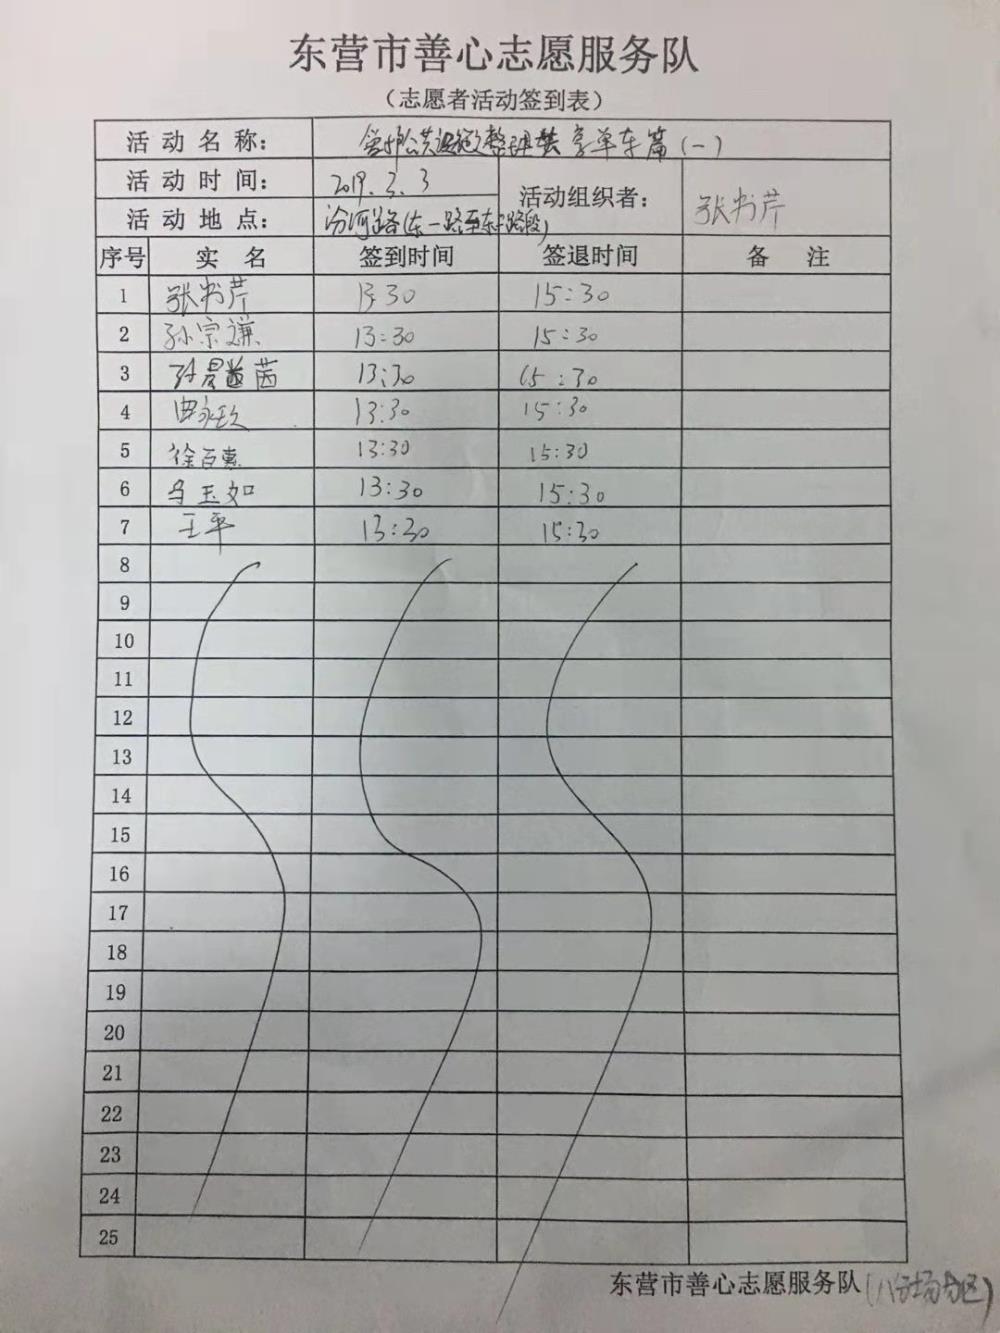 东营市善心志愿服务队
（志愿者活动签到表）
活动名称： 公共设施整理共享单车篇(一)
活动时间： 2019.3.3 活动组织者： 张书芹
活动地点： 汾河路(东一路至东二路段)
序号 实名 签到时间 签退时间 备注
1 张书芹 13:30 15:30
2 孙宗谦 13:30 15:30
3 13:30 15:30
4 13:30 15:30
5 徐百惠 13:30 15:30
6 玉如 13:30 15:30
7 王平 13:30 15:30
8
9
10
11
12
13
14
15
16
17
18
19
20
21
22
23
24
25
东营市善心志愿服务队